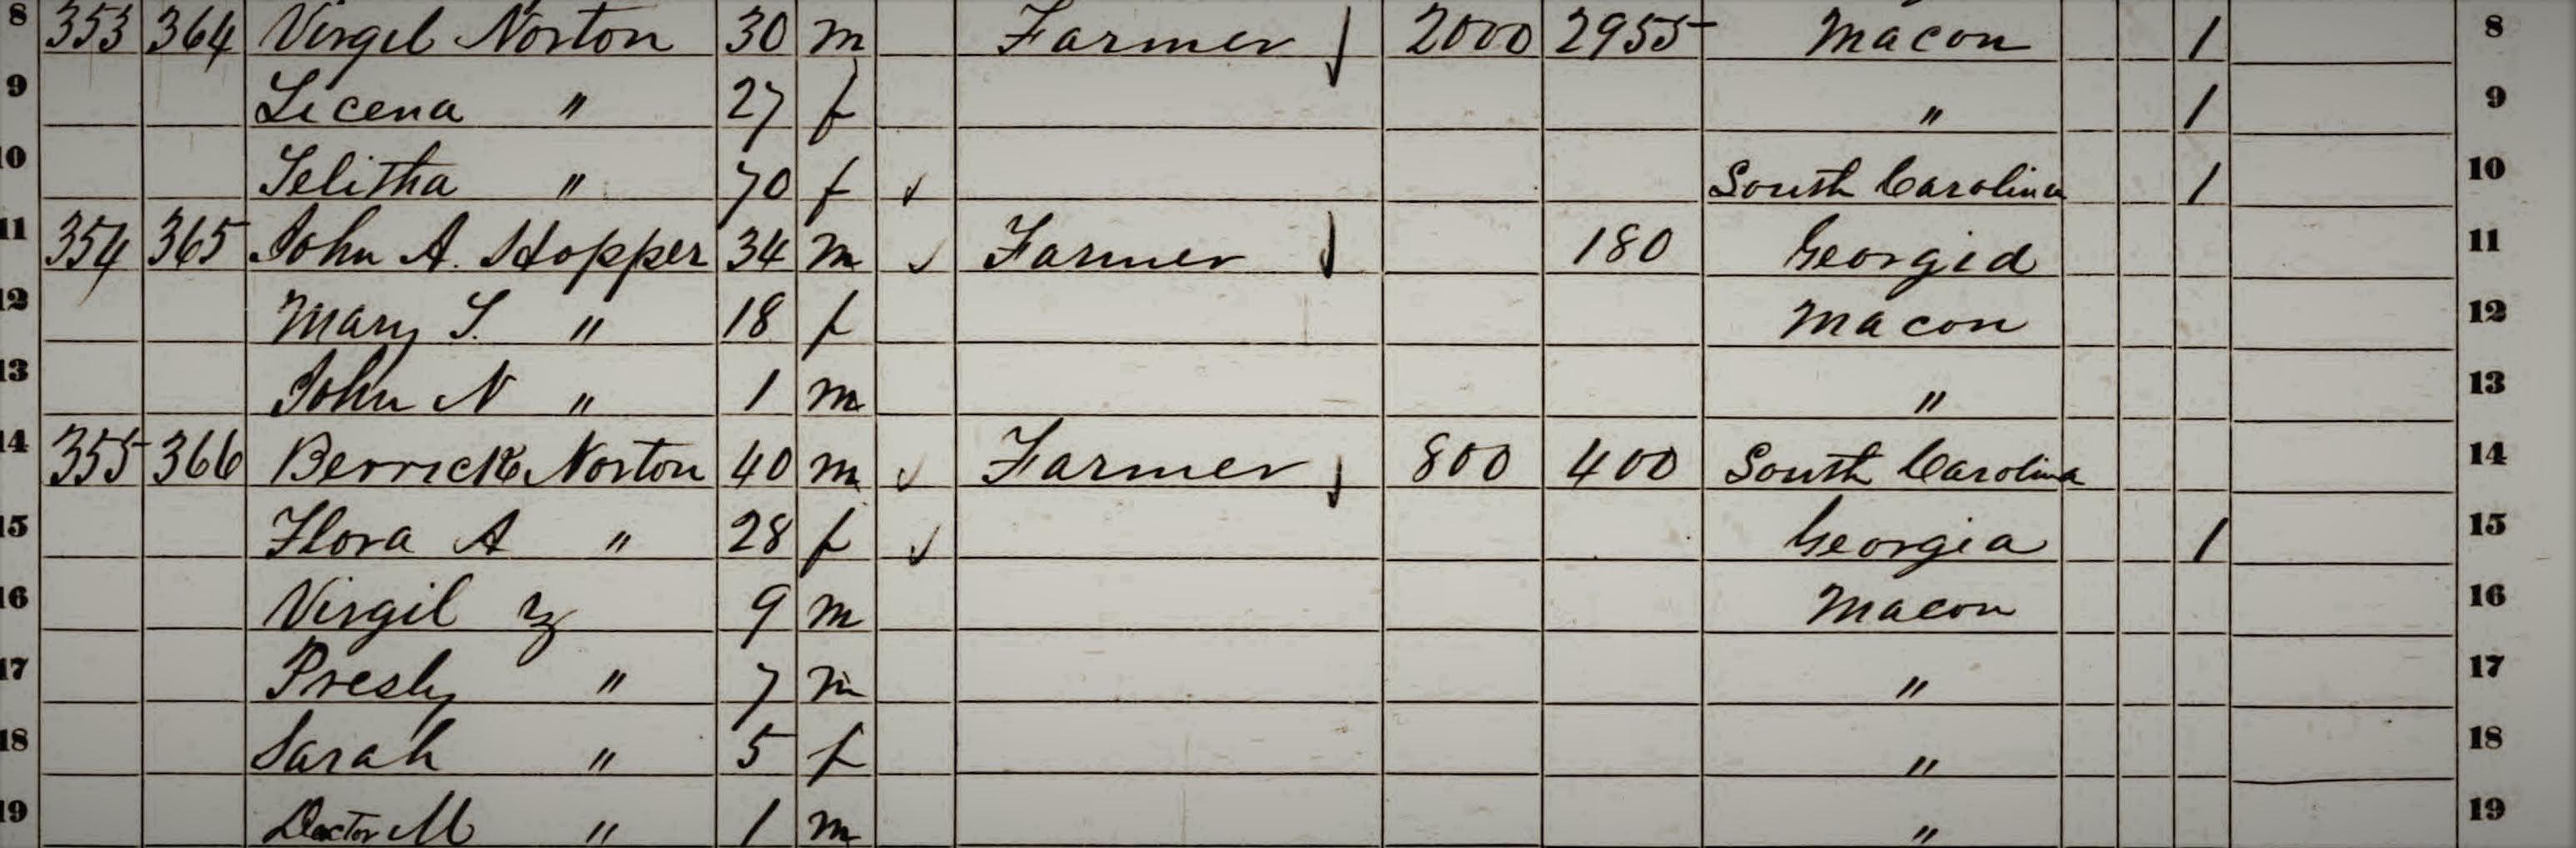 8 353 364 Virgil Norton 30 m Farmer 2000 2955 Macon 1 8
9 Licena " 27 f " 1 9
10 Telitha " 70 f ✓ South Carolina 1 10
11 354 365 John A. Hopper 34 m ✓ Farmer 180 Georgia 11
12 Mary T. " 18 f Macon 12
13 John N " 1 m " 13
14 355 366 Berrick Norton 40 m ✓ Farmer 800 400 South Carolina 14
15 Flora A " 28 f ✓ Georgia 1 15
16 Virgil 9 m Macon 16
17 Presly " 7 m " 17
18 Sarah " 5 f " 18
19 Doctor M " 1 m " 19